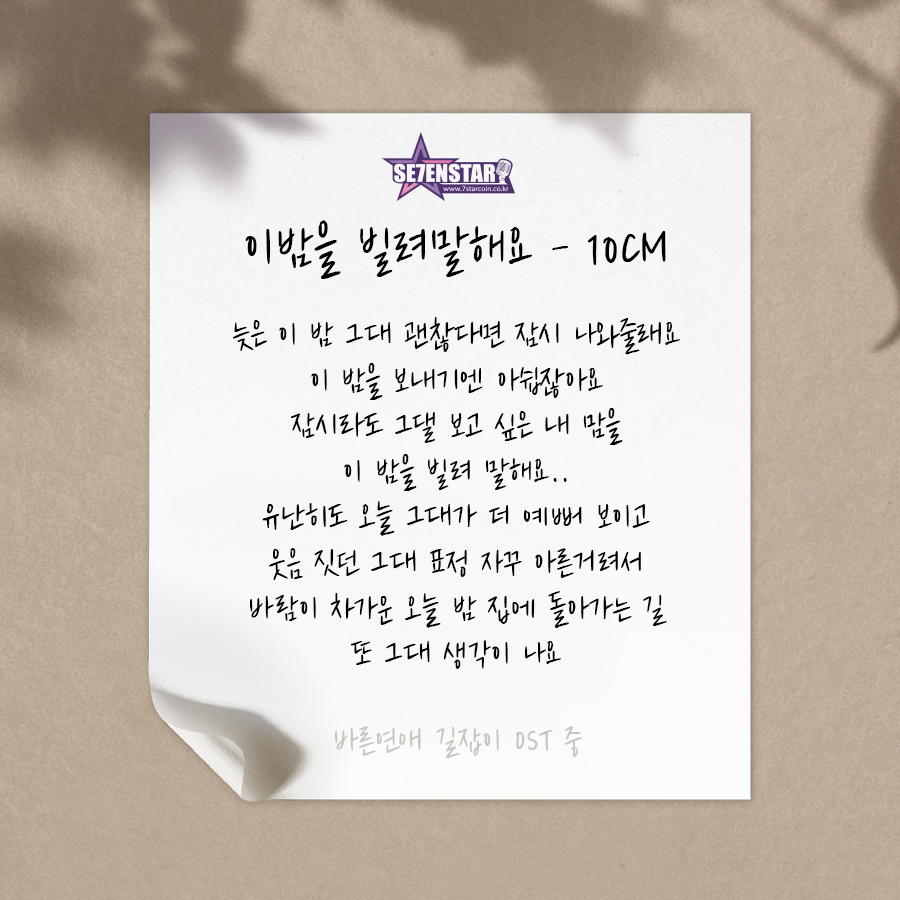 SE7ENSTAR
www.7starcoin.co.kr
이밤을 빌려말해요 - 10CM
늦은 이 밤 그대 괜찮다면 잠시 나와줄래요
이 밤을 보내기엔 아쉽잖아요
잠시라도 그댈 보고 싶은 내 맘을
이 밤을 빌려 말해요..
유난히도 오늘 그대가 더 예뻐 보이고
웃음 짓던 그대 표정 자꾸 아른거려서
바람이 차가운 오늘 밤 집에 돌아가는 길
또 그대 생각이 나요
바른연애 길잡이 OST 중